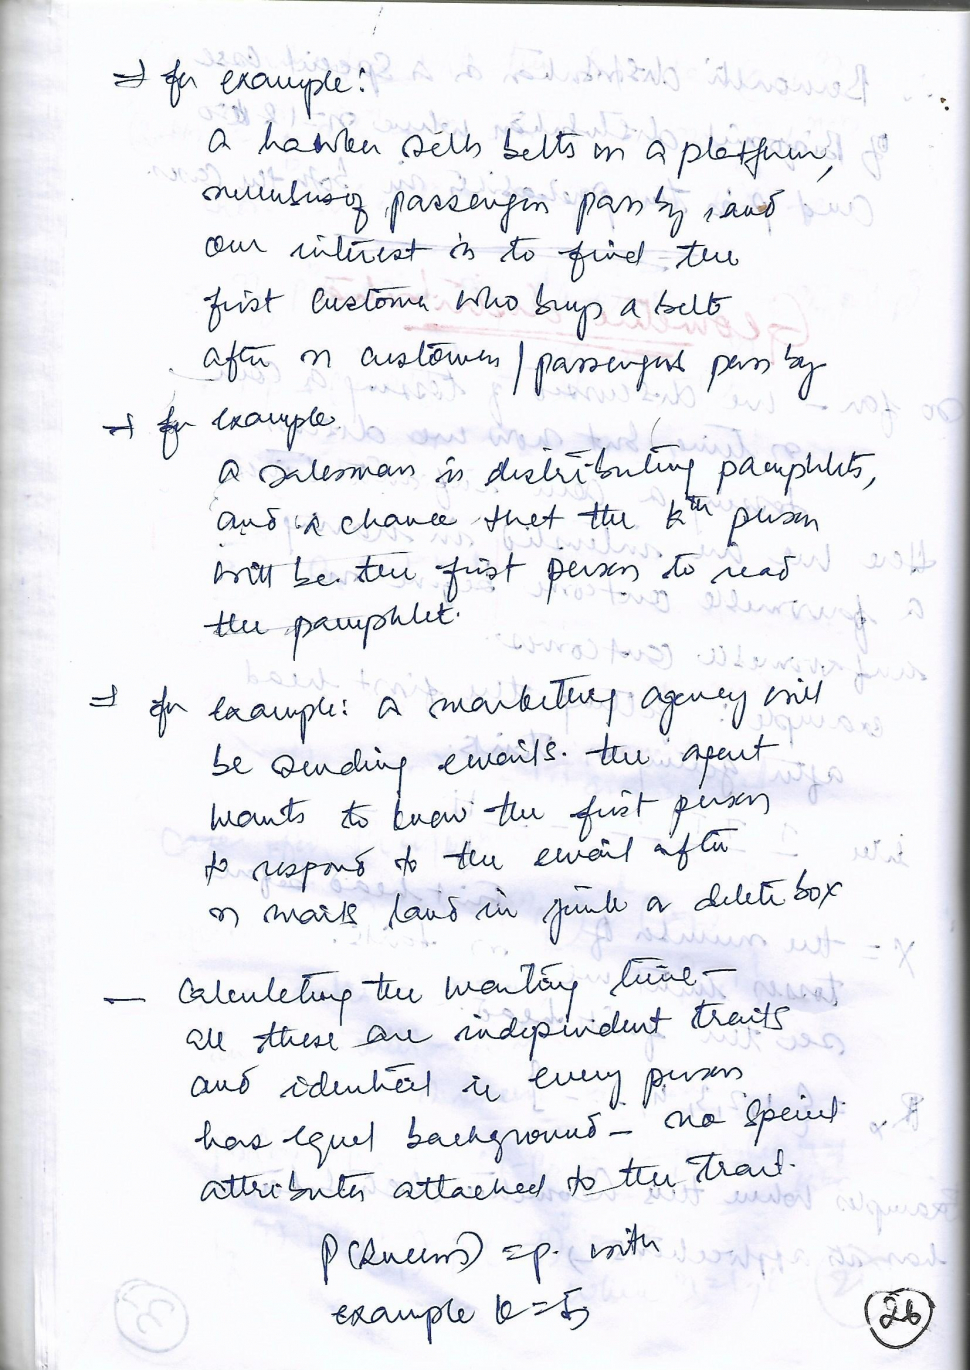 ⇒ for example:
a hawker sells belts on a platform,
number of passengers pass by, and
our interest is to find the
first customer who buys a belt
after n customers / passengers pass by
→ for example
a salesman is distributing pamphlets,
and is chance that the kth person
will be the first person to read
the pamphlet.
⇒ for example: a marketing agency will
be sending emails. the agent
wants to know the first person
to respond to the email after
n mails land in junk or delete box
— Calculating the waiting time –
all these are independent traits
and identical ie every person
has equal background – no special
attributes attached to the trait.
P(Success) = p. with
example k = 5
26